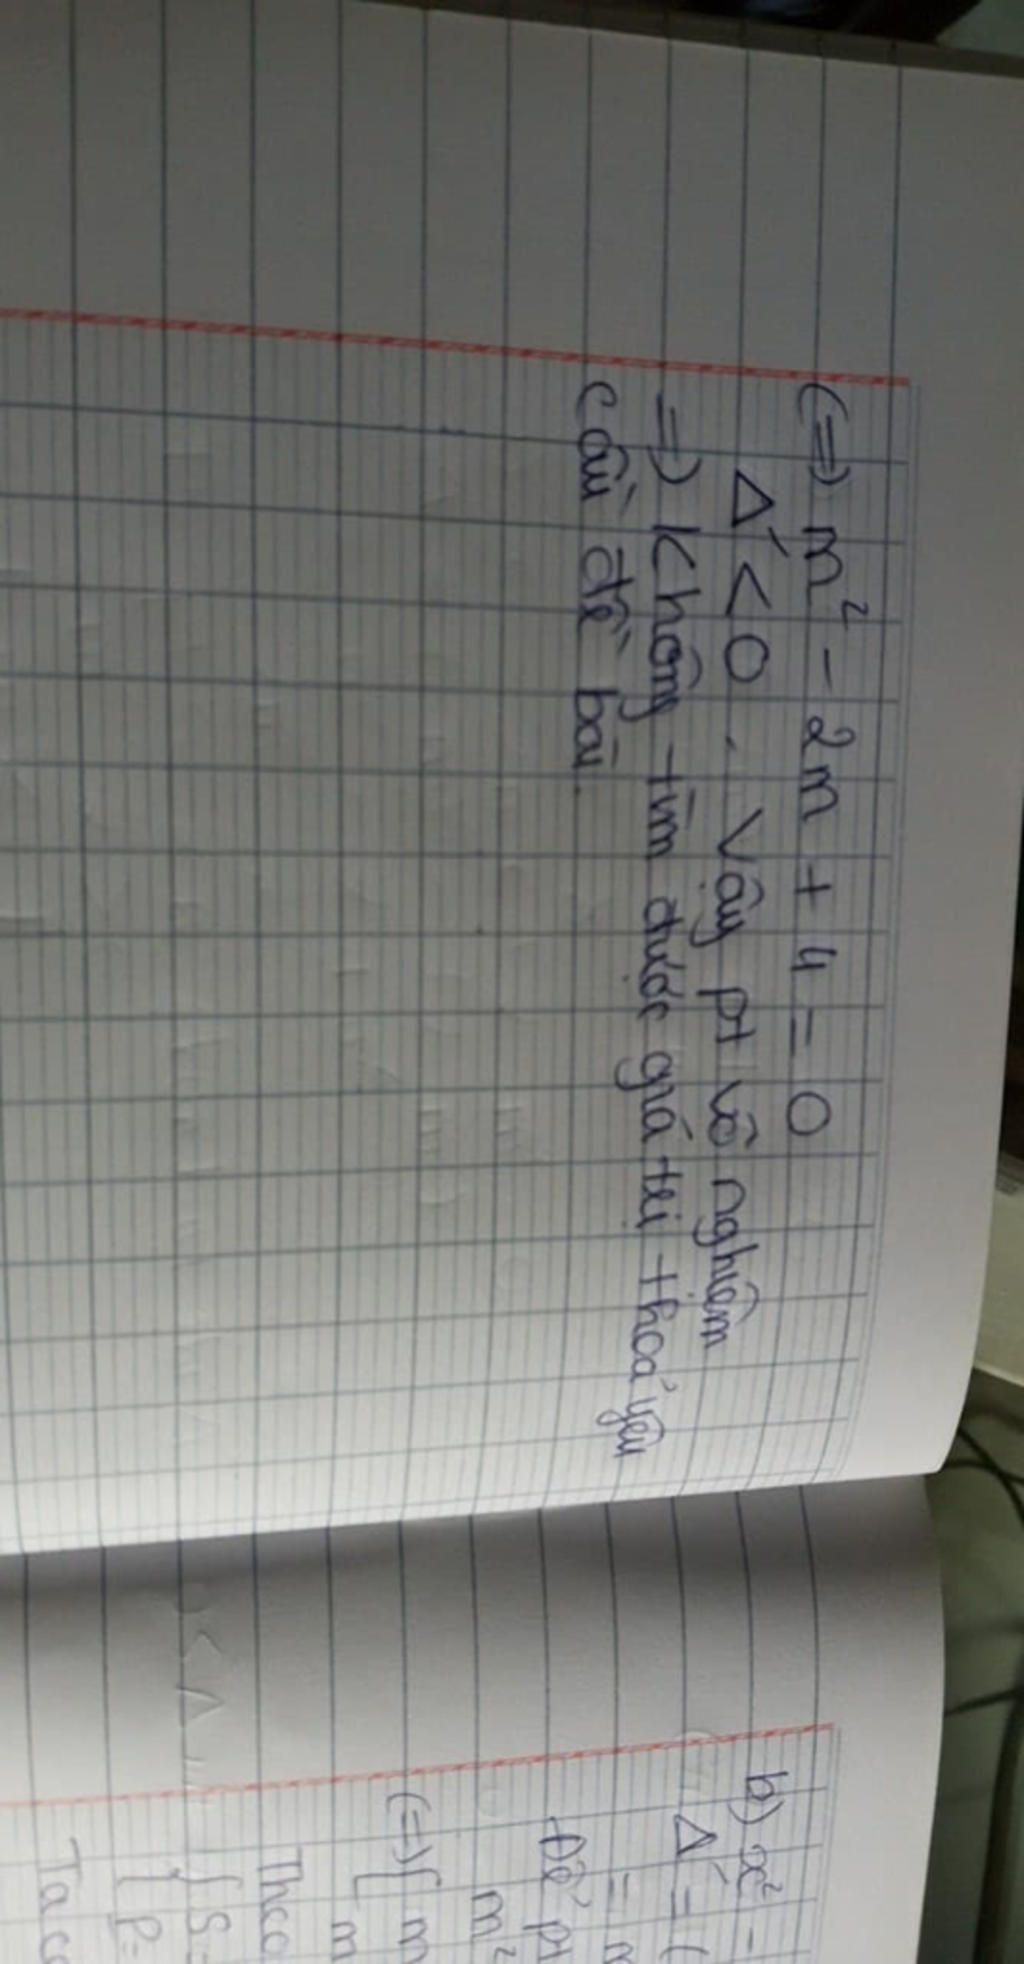 (=) m² - 2m + 4 = 0
Δ' < 0. Vậy pt vô nghiệm
=) Không tìm được giá trị thoả yêu
cầu đề bài.
b) x² -
Δ' = (
= m
Để pt
m²
(=) [ m
[ m
Theo
{ S =
{ P =
Ta có